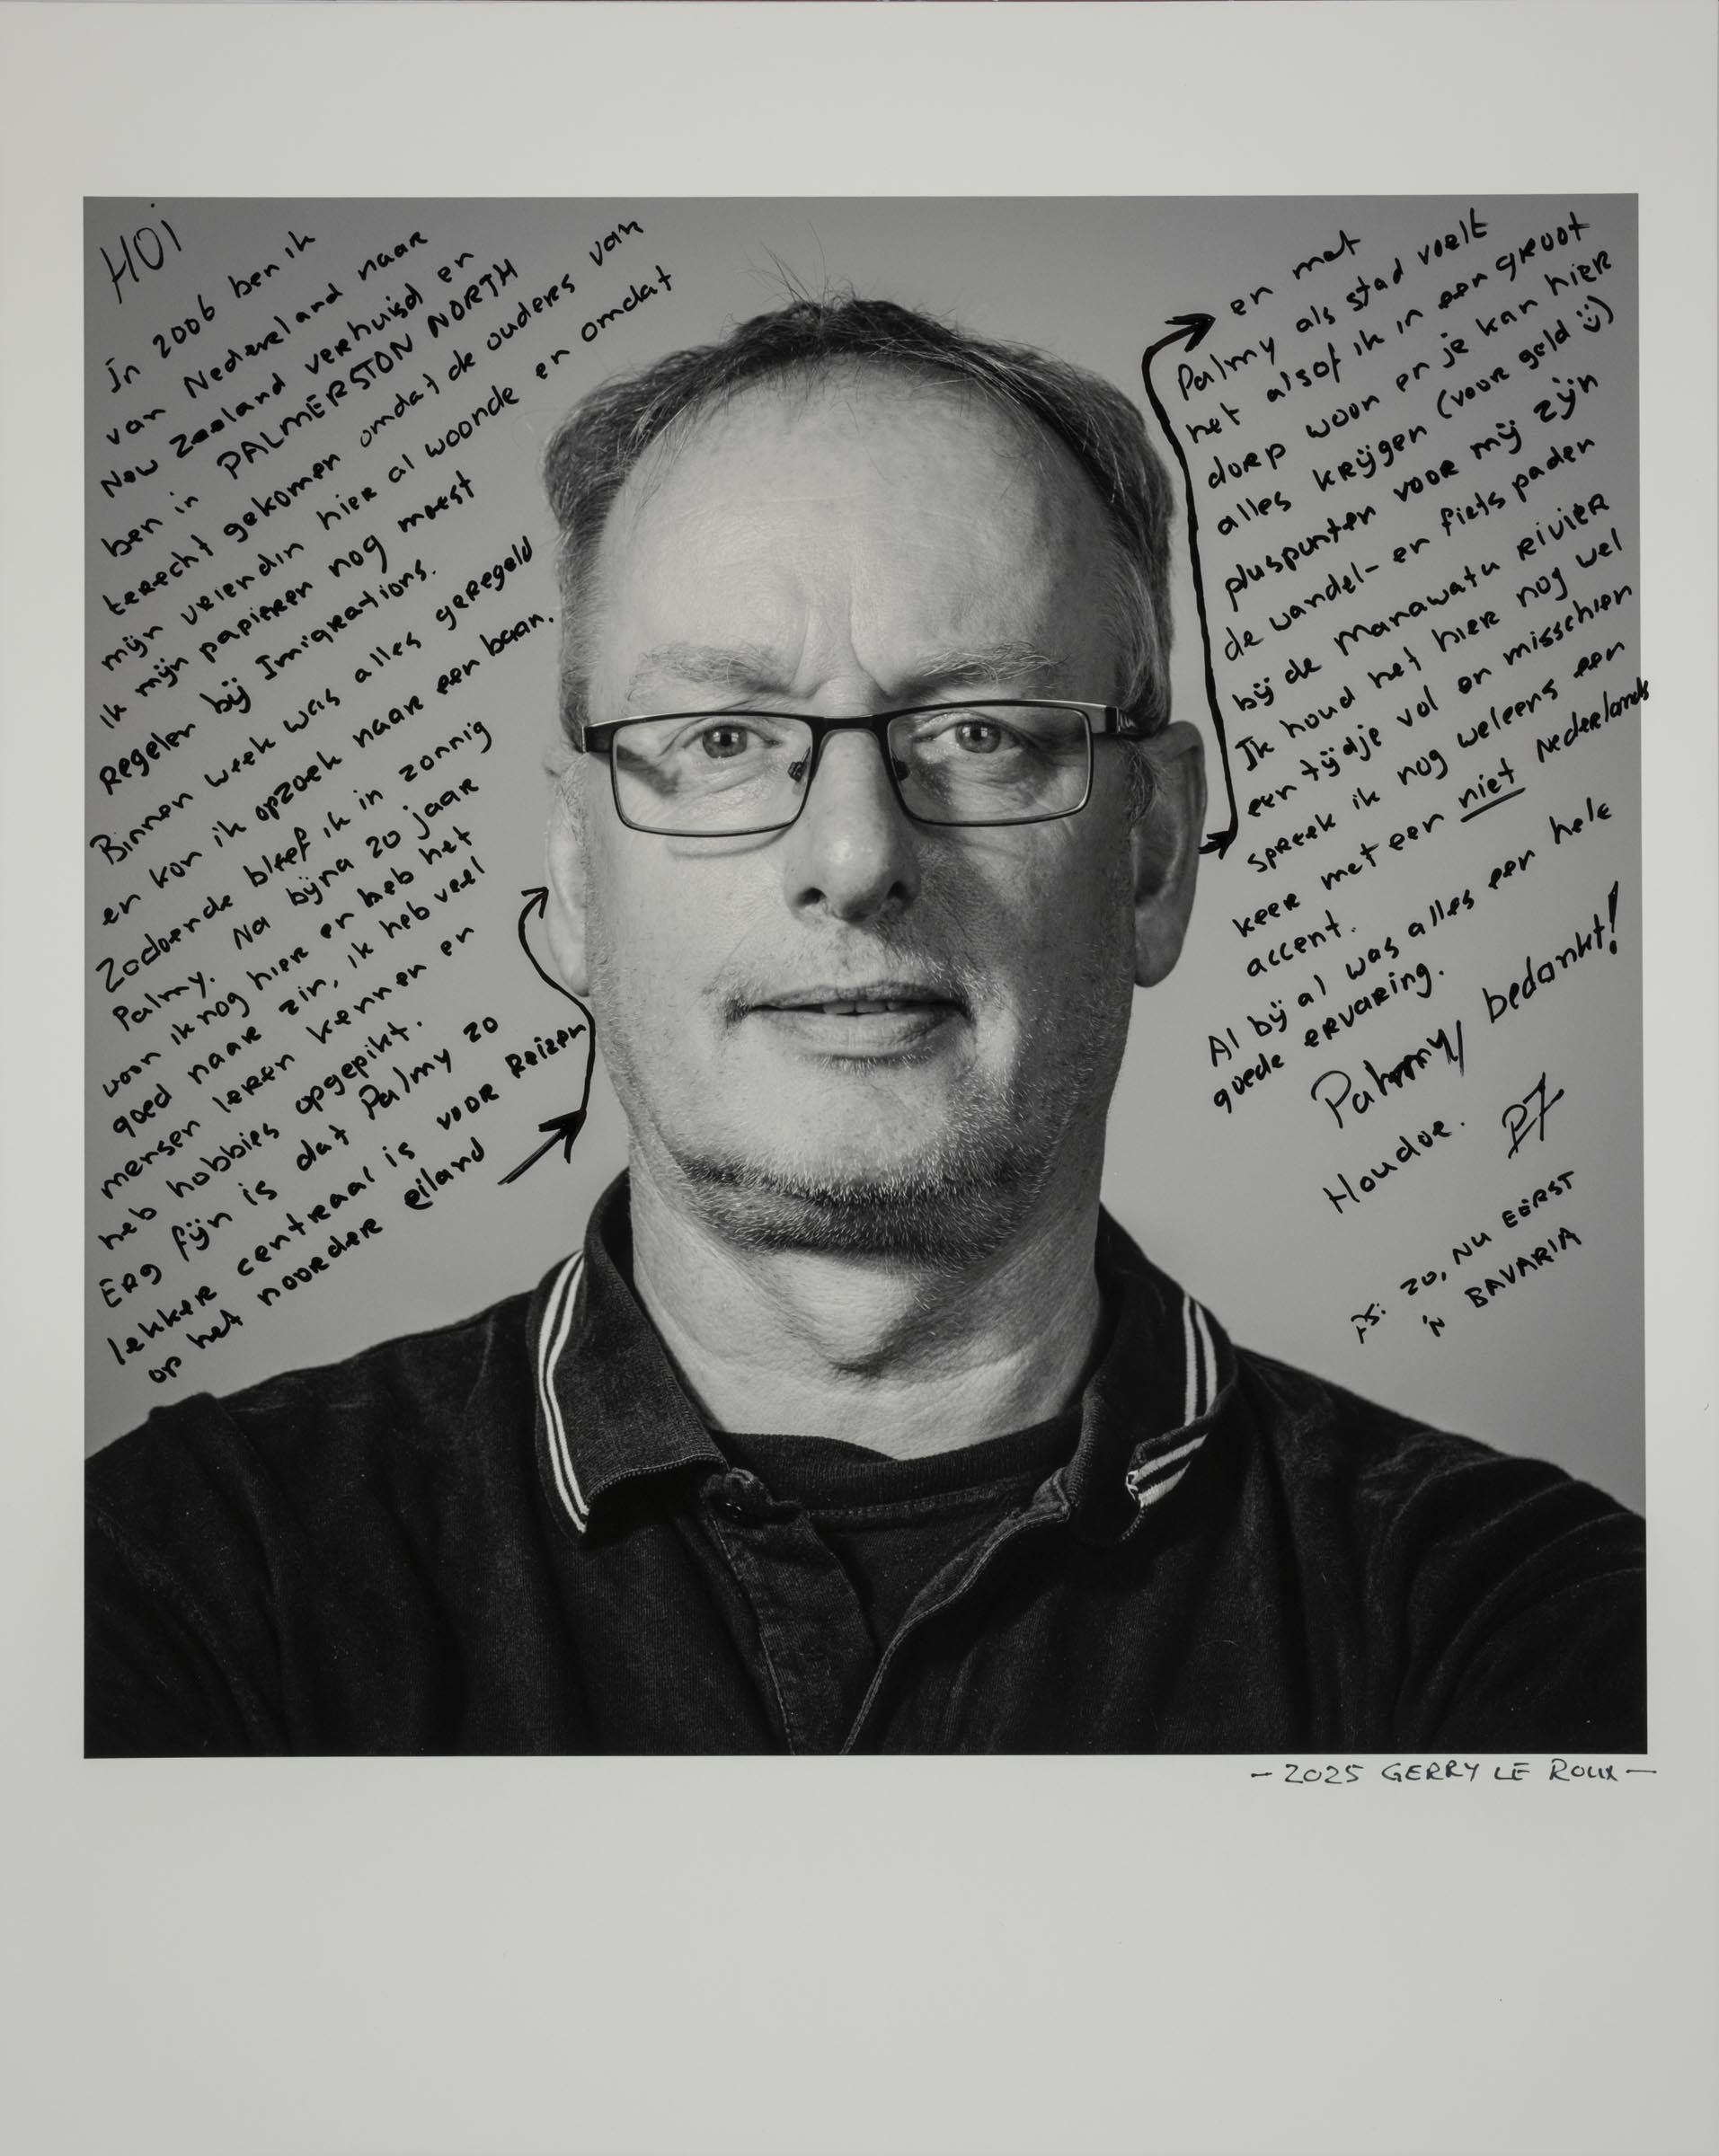 HOi
In 2006 ben ik
van Nedereland naar
New Zealand verhuisd en
ben in PALMERSTON NORTH
terecht gekomen omdat de ouders van
mijn vriendin hier al woonde en omdat
ik mijn papieren nog moest
Regelen bij Imigrations.
Binnen week was alles geregeld
en kon ik opzoek naar een baan.
Zodoende bleef ik in zonnig
Palmy. Na bijna 20 jaar
woon ik nog hier en heb het
goed naar zin, ik heb veel
mensen leren kennen en
heb hobbies opgepikt.
Erg fijn is dat Palmy zo
lekker centraal is voor Reizen
op het noorder eiland
en met
Palmy als stad voelt
het alsof ik in een groot
dorp woon en je kan hier
alles krijgen (voor geld ü)
pluspunten voor mij zijn
de wandel- en fiets paden
bij de Manawatu rivier
Ik houd het hier nog wel
een tijdje vol en misschien
spreek ik nog weleens een
keer met een niet Nederlands
accent.
Al bij al was alles een hele
goede ervaring.
Palmy bedankt!
Houdoe.
PS: ZO, NU EERST
'n BAVARIA
- 2025 GERRY LE ROUX -